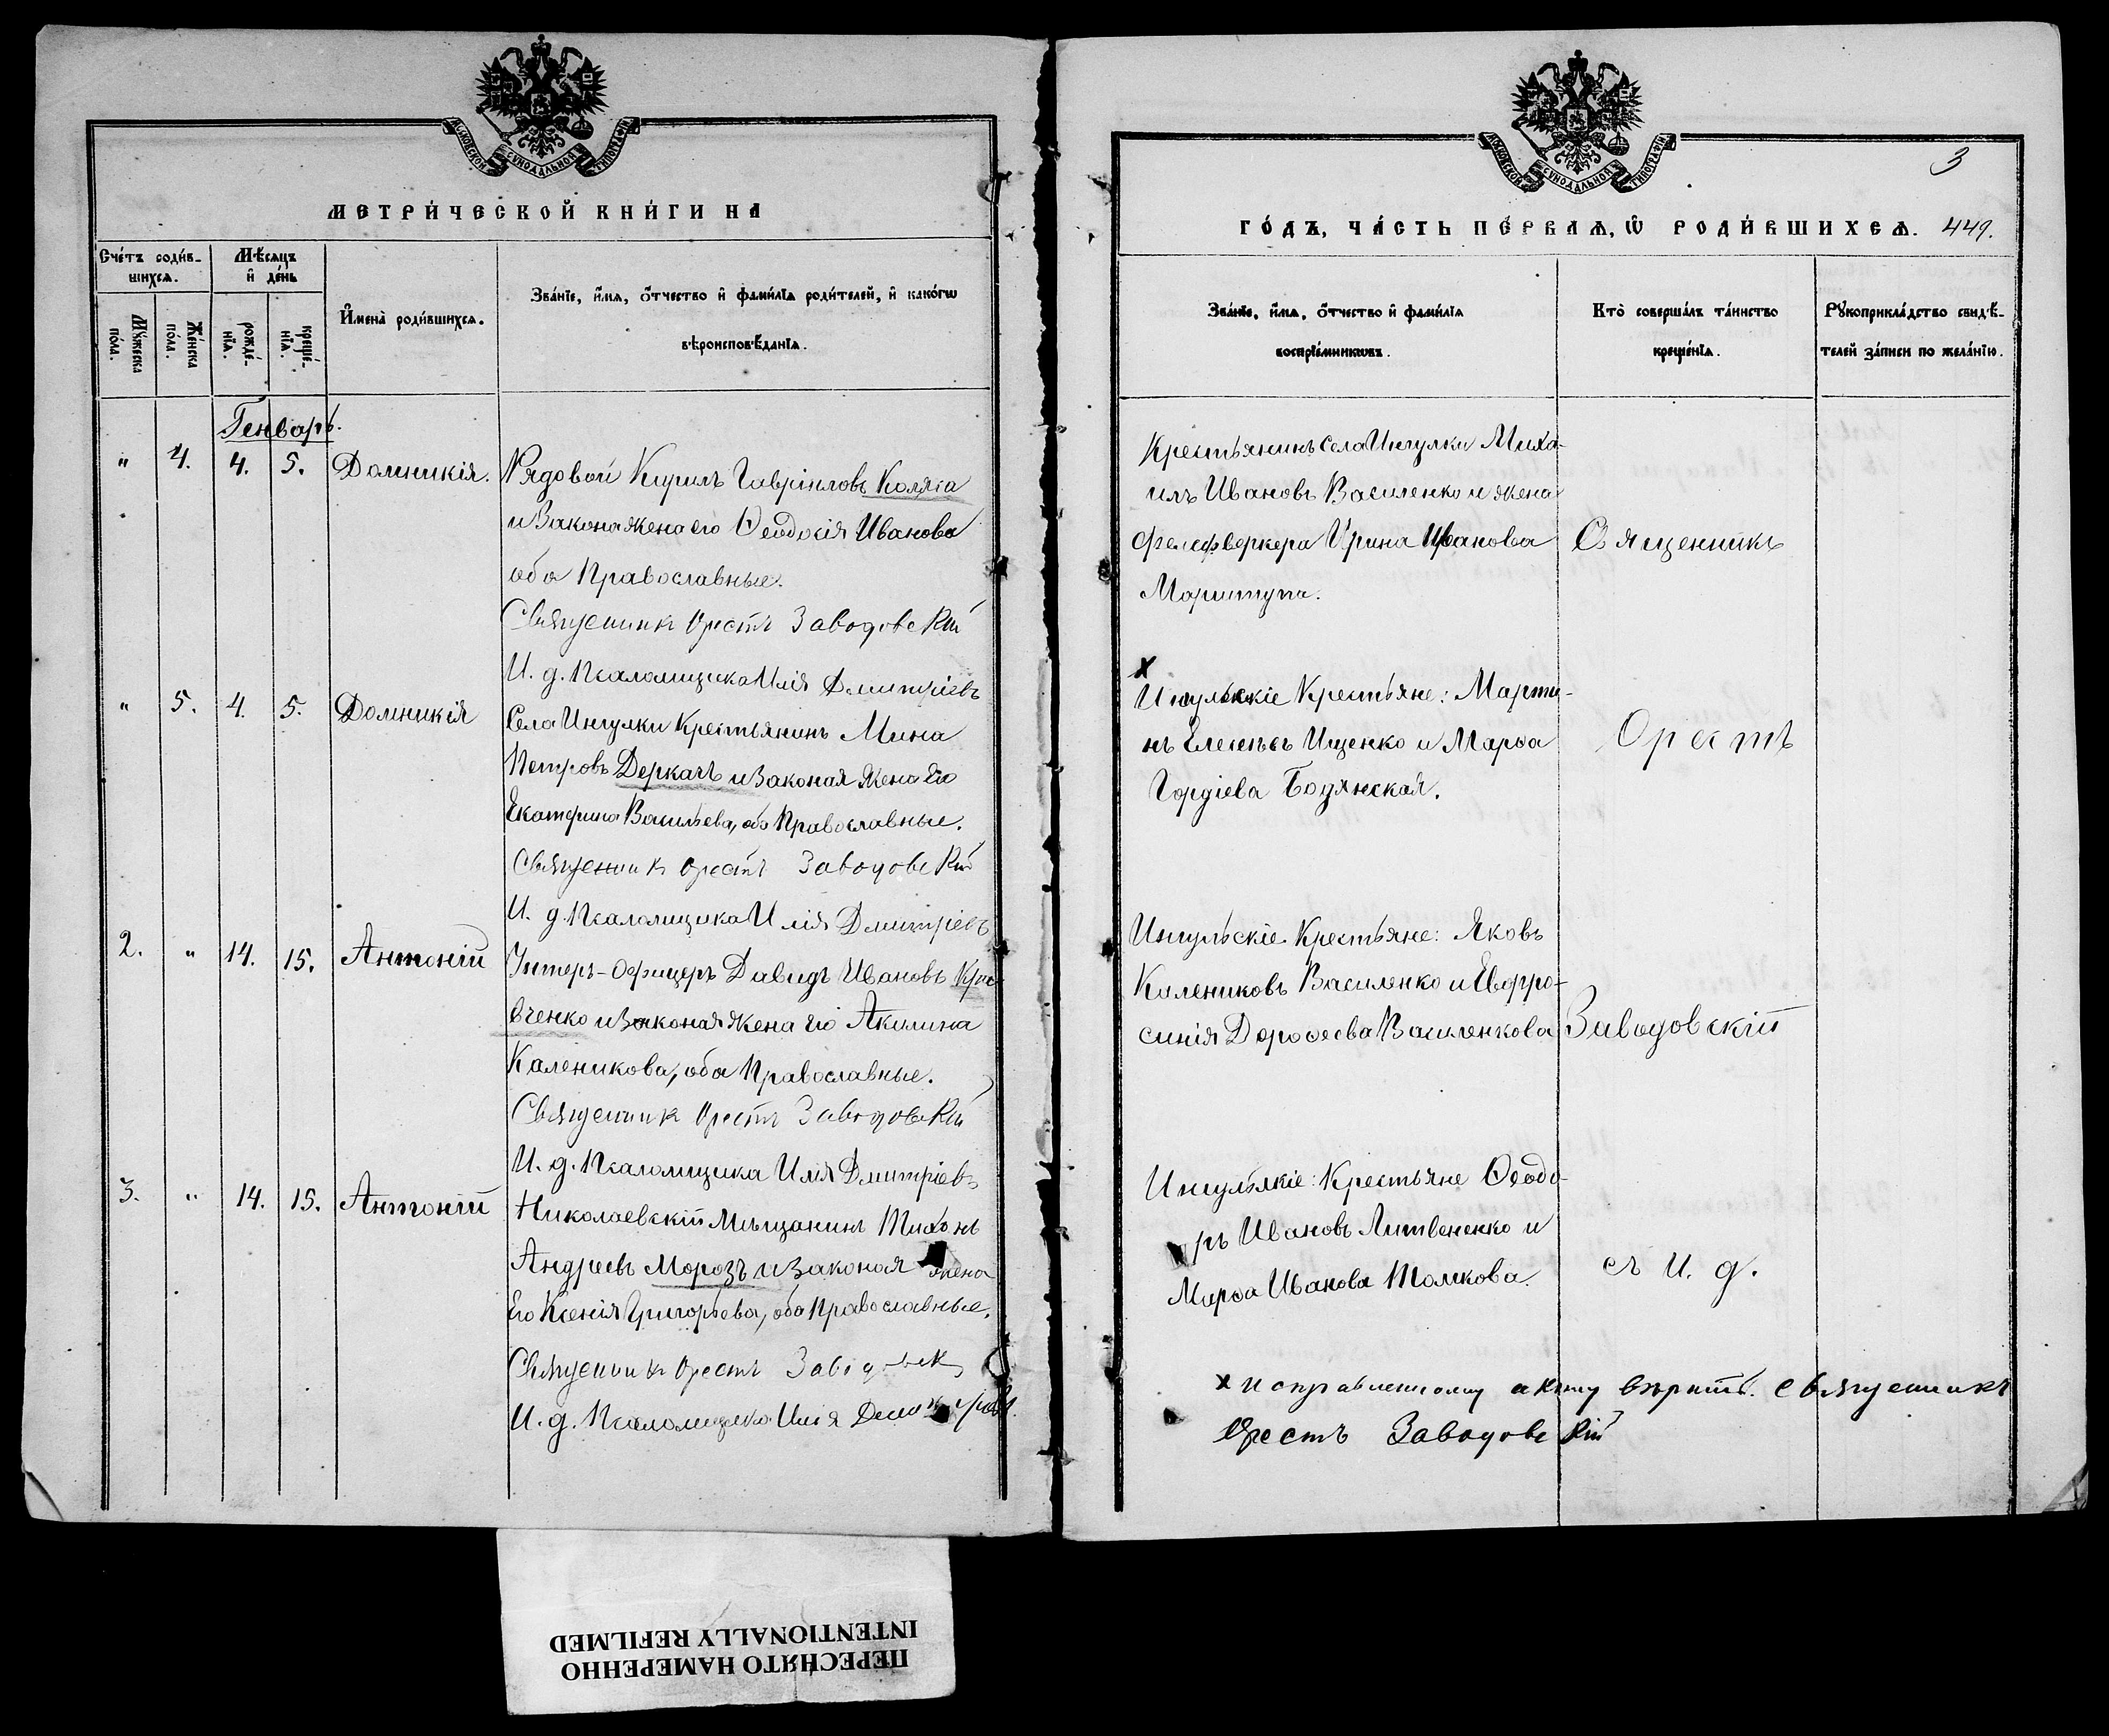 МОСКОВСКОЙ СѴНОДАЛЬНОЙ ТИПОГРАФІИ
МЕТРИ́ЧЕСКОЙ КНИ́ГИ НА
Сче́тъ роди́в-
шихсѧ.
Мѣ́сѧцъ
и҆ де́нь
И҆мена̀ роди́вшихсѧ.
Зва́нїе, и҆́мѧ, ѻ҆́тчество и҆ фами́лїѧ роди́телей, и҆ како́гѡ
вѣроисповѣ́данїѧ.
Мꙋ́жеска
по́ла.
Же́нска
по́ла.
рожде́-
нїѧ.
креще́-
нїѧ.
Генварь.
" 4. 4. 5. Домникія.
Рядовой Кирилъ Гавріиловъ Коляга
и Закона жена его Ѳеодосія Иванова
оба Православные.
Священникъ Орестъ Заводовскій
И. д. Псаломщика Илія Дмитріевъ
" 5. 4. 5. Домникія
Села Ингулки Крестьянинъ Мина
Петровъ Деркачъ и Законая жена Его
Екатерина Васильева, оба Православные.
Священникъ Орестъ Заводовскій
И. д. Псаломщика Илія Дмитріевъ
2. " 14. 15. Антоній
Унтеръ-Офицеръ Давидъ Ивановъ Кра-
вченко и Законая жена Его Акилина
Каленикова, оба Православные.
Священникъ Орестъ Заводовскій
И. д. Псаломщика Илія Дмитріевъ
3. " 14. 15. Антоній
Николаевскій Мѣщанинъ Тихонъ
Андреевъ Морозъ и Законая жена
Его Ксенія Григорьева, оба Православные.
Священникъ Орестъ
И. д. Псаломщика Илія
МОСКОВСКОЙ СѴНОДАЛЬНОЙ ТИПОГРАФІИ
3
ГО́ДЪ, ЧА́СТЬ ПЕ́РВАѦ, Ѡ҆ РОДИ́ВШИХСѦ. 449.
Зва́нїе, и҆́мѧ, ѻ҆́тчество и҆ фами́лїѧ
воспрїе́мникѡвъ.
Кто̀ соверша́лъ та́инство
креще́нїѧ.
Рꙋкоприкла́дство свидѣ́-
телей за́писи по жела́нїю.
Крестьянинъ Села Ингулки Миха-
илъ Ивановъ Василенко и жена
Фейерверкера Ирина Иванова
Священникъ
Х
Ингульскіе Крестьяне: Марти-
нъ Елисѣевъ Ищенко и Марѳа
Гордіева Бодянская.
Орестъ
Ингульскіе Крестьяне: Яковъ
Калениковъ Василенко и Евфро-
синія Дороѳеева Василенкова
Заводовскій
Ингульскіе: Крестьяне Ѳеодо-
ръ Ивановъ Литвененко и
Марѳа Иванова Толмкова.
съ И. д.
х исправленному акту вѣрить. Священникъ
Орестъ Заводовскій
ПЕРЕСНЯТО НАМЕРЕННО
INTENTIONALLY REFILMED